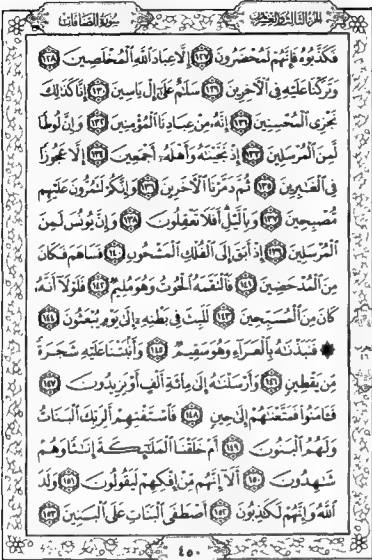 الجزء الثالث والعشرون
سورة الصافات
فَكَذَّبُوهُ فَإِنَّهُمْ لَمُحْضَرُونَ ١٢٧ إِلَّا عِبَادَ اللَّهِ الْمُخْلَصِينَ ١٢٨
وَتَرَكْنَا عَلَيْهِ فِي الْآخِرِينَ ١٢٩ سَلَامٌ عَلَىٰ إِلْ يَاسِينَ ١٣٠ إِنَّا كَذَٰلِكَ
نَجْزِي الْمُحْسِنِينَ ١٣١ إِنَّهُ مِنْ عِبَادِنَا الْمُؤْمِنِينَ ١٣٢ وَإِنَّ لُوطًا
لَّمِنَ الْمُرْسَلِينَ ١٣٣ إِذْ نَجَّيْنَاهُ وَأَهْلَهُ أَجْمَعِينَ ١٣٤ إِلَّا عَجُوزًا
فِي الْغَابِرِينَ ١٣٥ ثُمَّ دَمَّرْنَا الْآخَرِينَ ١٣٦ وَإِنَّكُمْ لَتَمُرُّونَ عَلَيْهِم
مُّصْبِحِينَ ١٣٧ وَبِاللَّيْلِ أَفَلَا تَعْقِلُونَ ١٣٨ وَإِنَّ يُونُسَ لَمِنَ
الْمُرْسَلِينَ ١٣٩ إِذْ أَبَقَ إِلَى الْفُلْكِ الْمَشْحُونِ ١٤٠ فَسَاهَمَ فَكَانَ
مِنَ الْمُدْحَضِينَ ١٤١ فَالْتَقَمَهُ الْحُوتُ وَهُوَ مُلِيمٌ ١٤٢ فَلَوْلَا أَنَّهُ
كَانَ مِنَ الْمُسَبِّحِينَ ١٤٣ لَلَبِثَ فِي بَطْنِهِ إِلَىٰ يَوْمِ يُبْعَثُونَ ١٤٤
۞ فَنَبَذْنَاهُ بِالْعَرَاءِ وَهُوَ سَقِيمٌ ١٤٥ وَأَنبَتْنَا عَلَيْهِ شَجَرَةً
مِّن يَقْطِينٍ ١٤٦ وَأَرْسَلْنَاهُ إِلَىٰ مِائَةِ أَلْفٍ أَوْ يَزِيدُونَ ١٤٧
فَآمَنُوا فَمَتَّعْنَاهُمْ إِلَىٰ حِينٍ ١٤٨ فَاسْتَفْتِهِمْ أَلِرَبِّكَ الْبَنَاتُ
وَلَهُمُ الْبَنُونَ ١٤٩ أَمْ خَلَقْنَا الْمَلَائِكَةَ إِنَاثًا وَهُمْ
شَاهِدُونَ ١٥٠ أَلَا إِنَّهُم مِّنْ إِفْكِهِمْ لَيَقُولُونَ ١٥١ وَلَدَ
اللَّهُ وَإِنَّهُمْ لَكَاذِبُونَ ١٥٢ أَصْطَفَى الْبَنَاتِ عَلَى الْبَنِينَ ١٥٣
٤٥٠